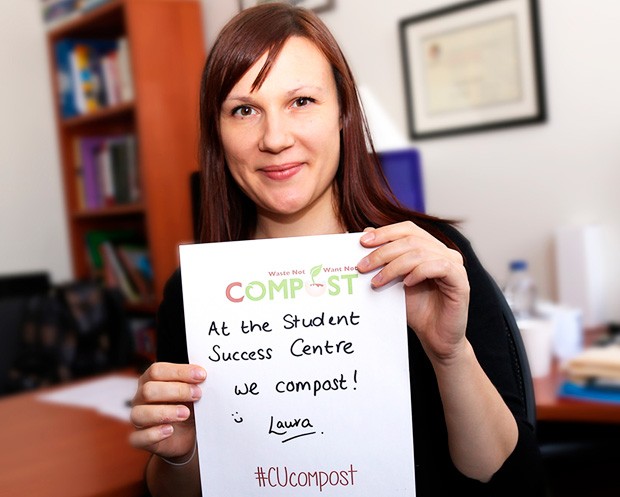 Waste Not Want Not
COMPOST
At the Student
Success Centre
we compost!
Laura.
#CUcompost